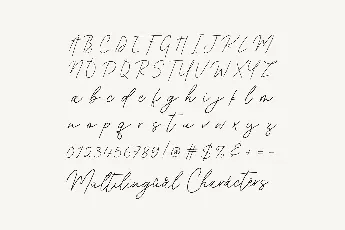 A B C D E F G H I J K L M
N O P Q R S T U V W X Y Z
a b c d e f g h i j k l m
n o p q r s t u v w x y z
0123456789!@#$%&+=-
Multilinguäl Charácters